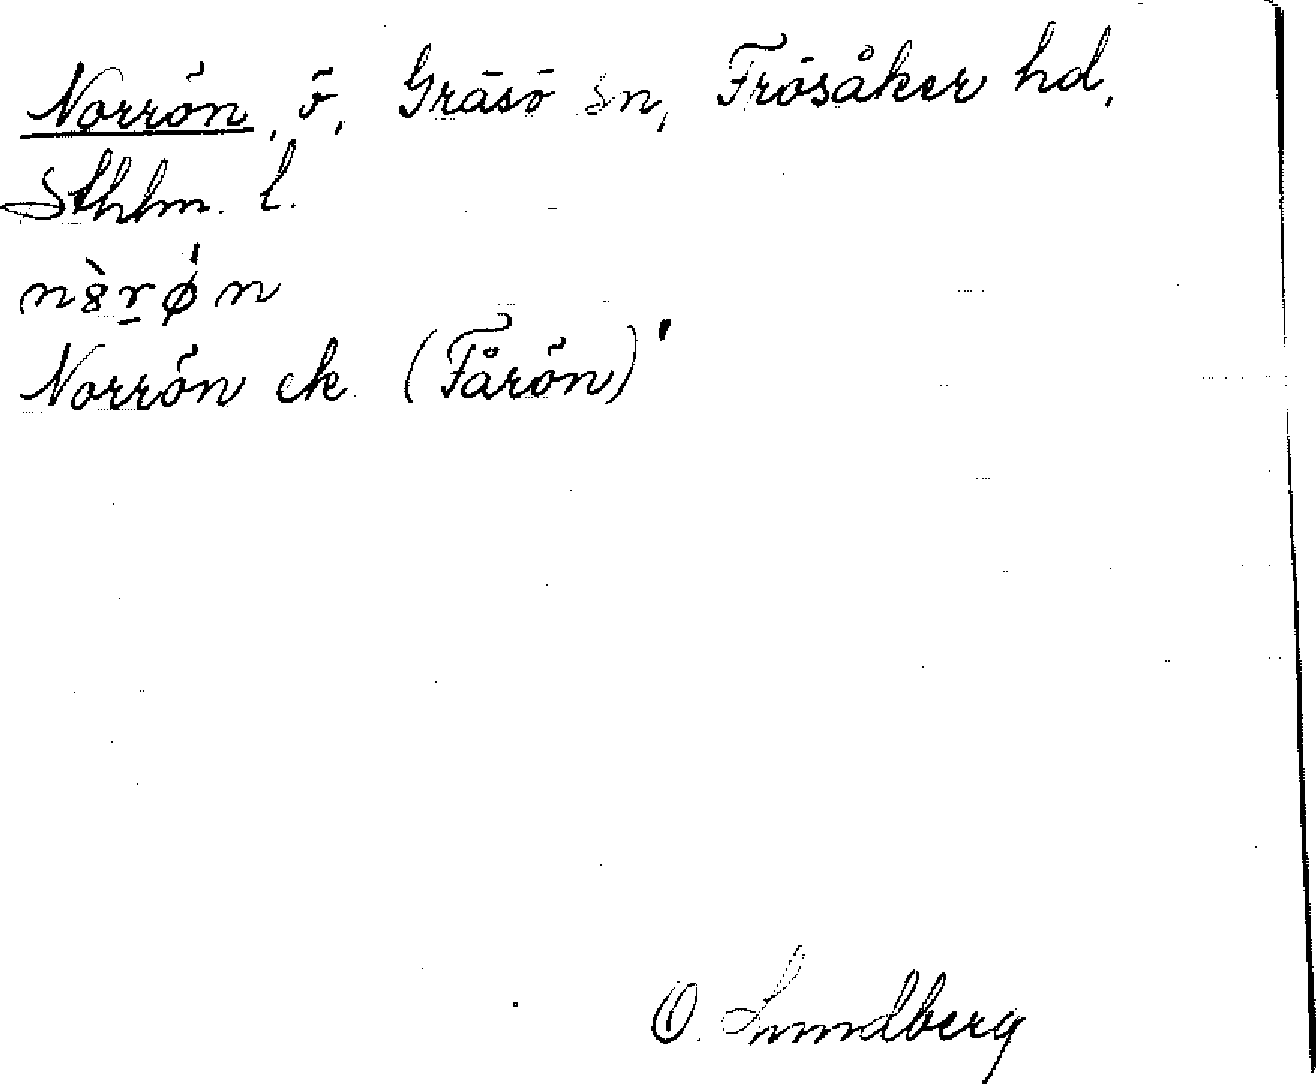 Norrön, ö, Gräsö sn, Frösåker hd,
Sthlm. l.
n8̀rø̍n
Norrön ek. (Fårön)'
O. Lundberg